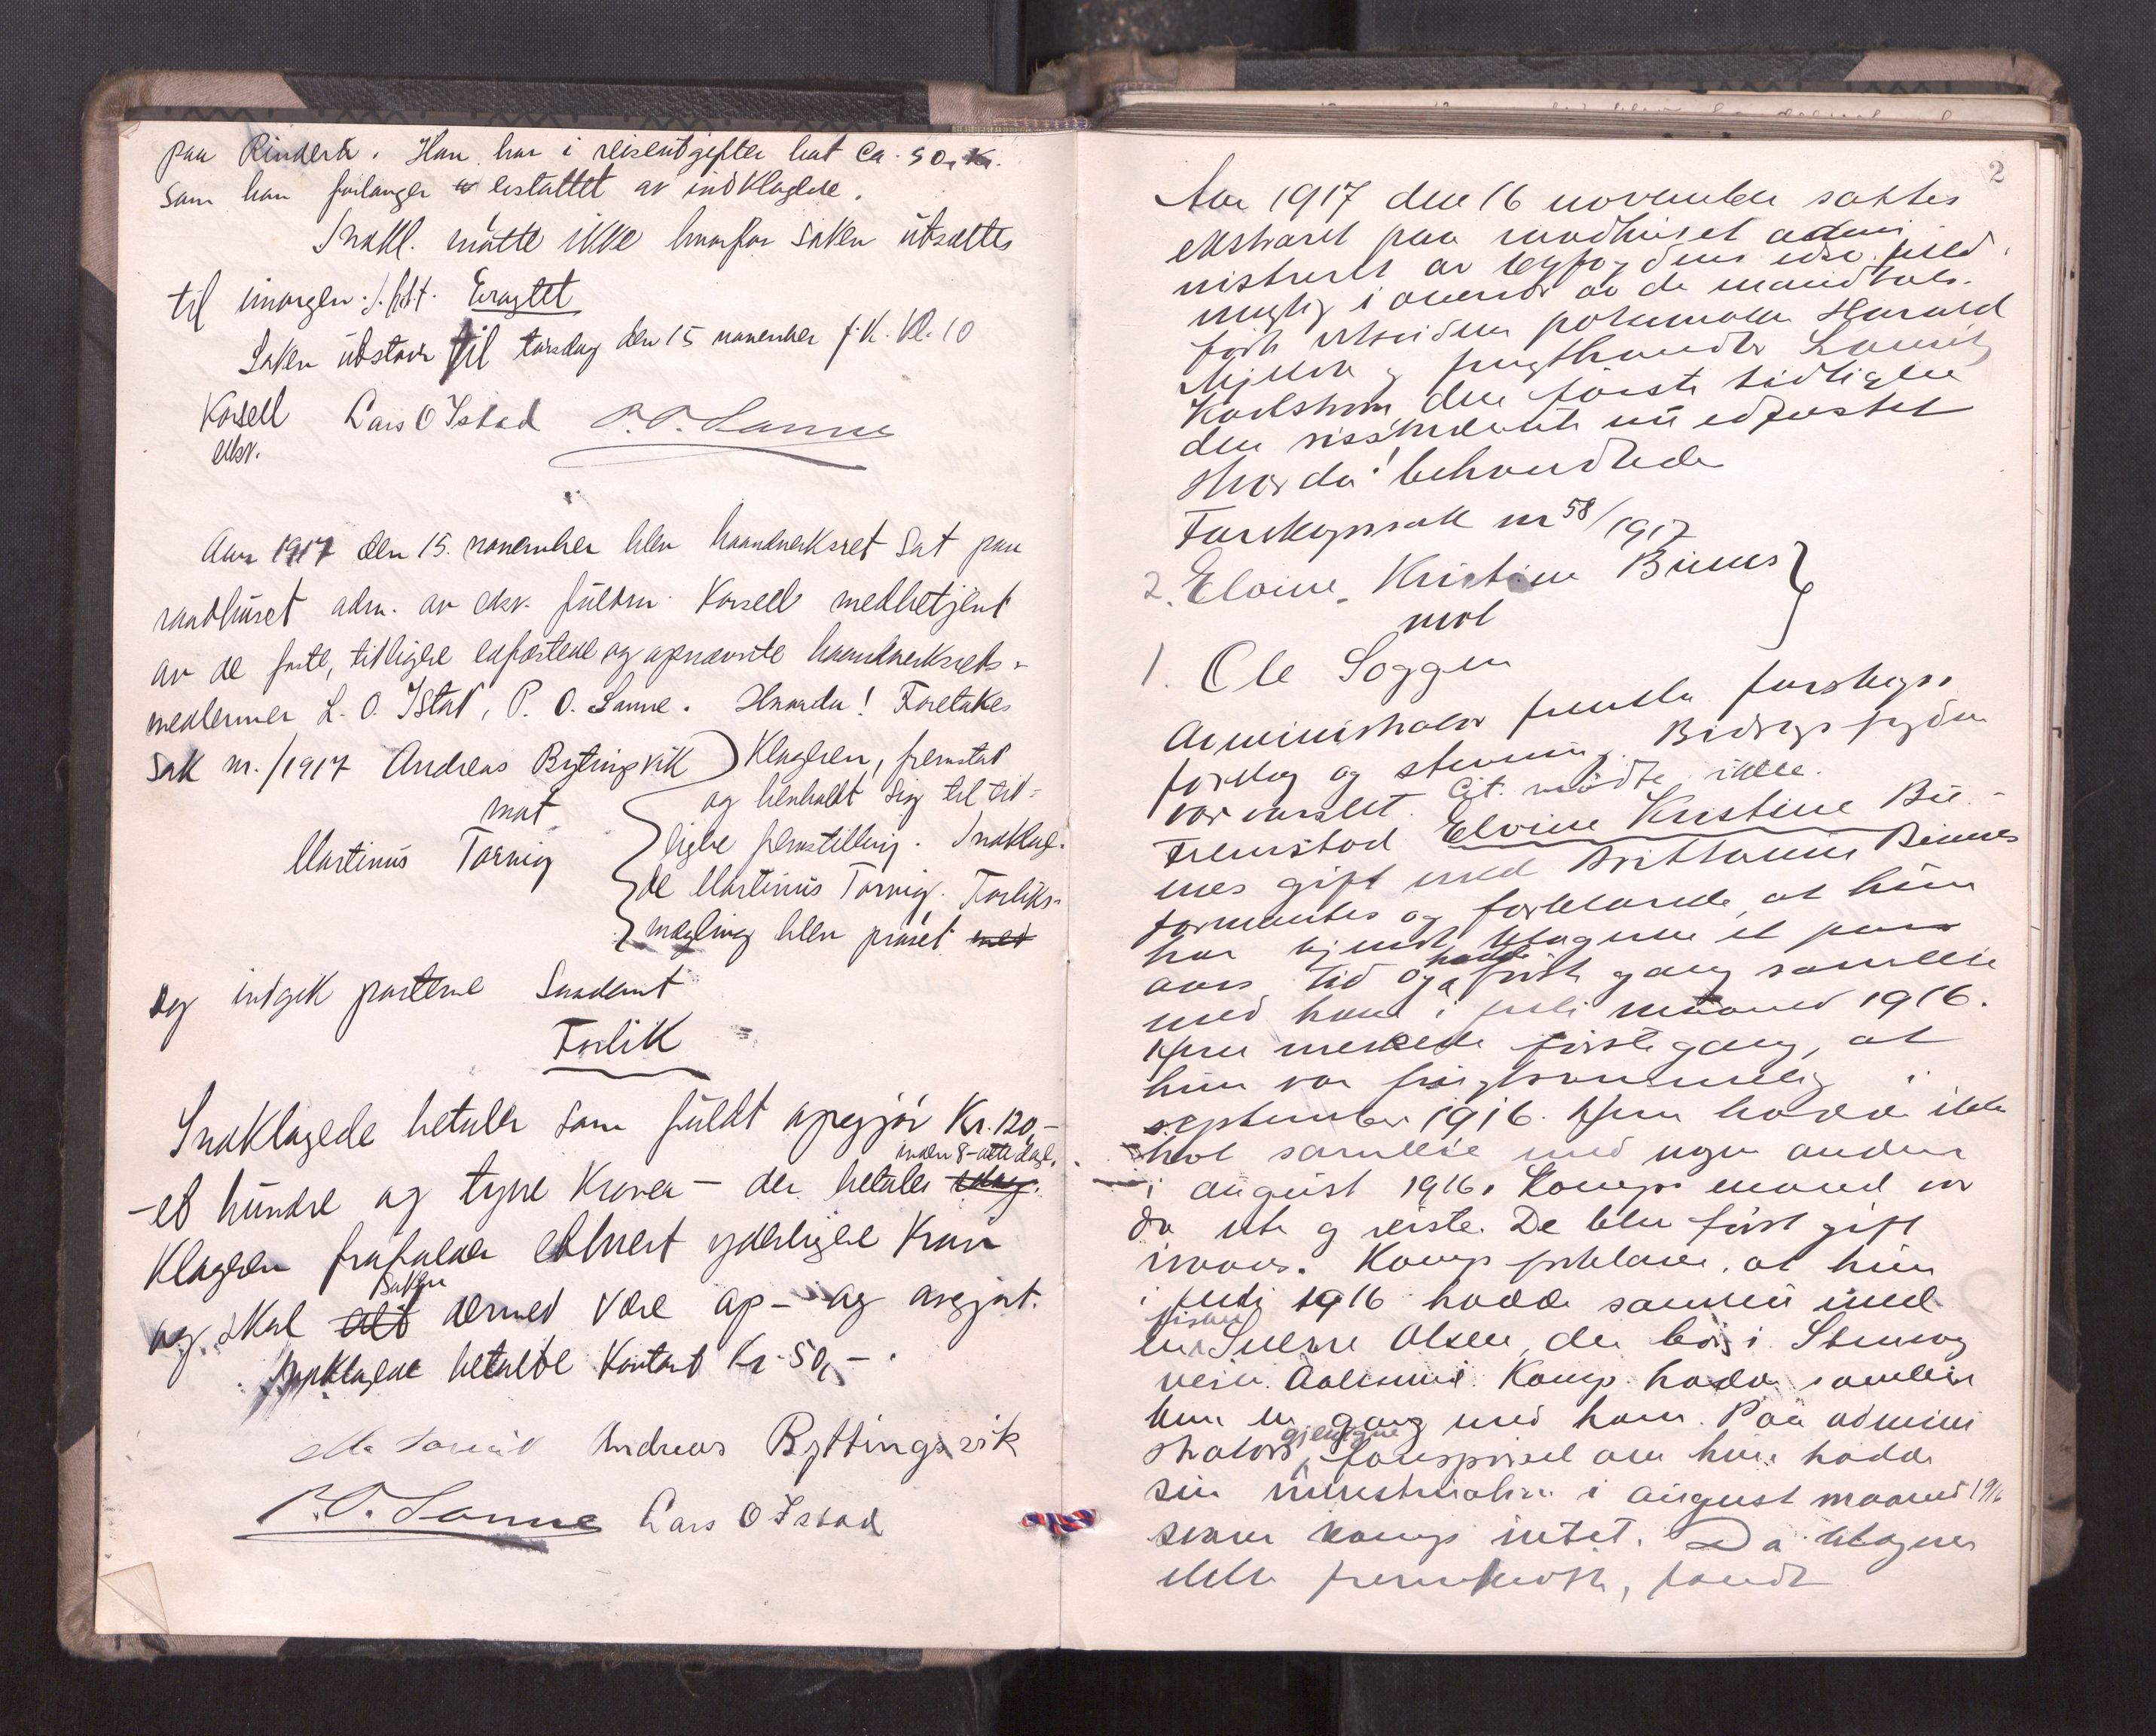 paa Rinderö. Han har i reiseutgifter hat ca. 50,- Kr.
som han forlanger erstattet av indklagede.
Indkl. møtte ikke hvorfor saken utsættes
til imorgen.
Saken utstaar til torsdag den 15 november f.k. kl. 10
Korsell Lars O Istad P.O. Sanne
eksr.
Aar 1917 den 15. november blev haandverksret sat paa
raadhuset adm. av eksr. fuldm. Korsell medbetjent
av de faste, tidligere edfæstede og opnævnte haandverksrets-
medlemmer L. O. Istad, P. O. Sanne. Hvorda! Foretakes
Sak nr. /1917 Andreas Bytingsvik Klageren, fremstod
mot og henholdt sig til tid-
Martinus Tornig ligere fremstilling. Indklag-
de Martinus Tornig. Forliks-
mægling blev prøvet med
og indgik parterne saadant
Forlik
Indklagede betaler som fuldt opgjør Kr. 120,-
inden 8-otte dage.
-et hundre og tyve Kroner- der betales idag.
Klageren frafalder ethvert yderligere Krav
Saken
og skal alt dermed være op- og avgjort.
Indklagede betalte kontant Kr. 50,-.
Andreas Byttingsvik
P.O. Sanne Lars O Istad
2
Aar 1917 den 16 november sattes
ekstraret paa raadhuset admi
nistrert av byfogdens edsv. fuld
mægtig i overvær av de mandtals-
førte retsvidner politimann Harald
og frugthandler Lauritz
Karlstrøm, den første tidligere
den sidstnævnte nu edfæstet
Hvorda! behandledes
Farskapssak nr 58/1917
2. Elvine Kristine Biines
mot
1. Ole Soggen
Administrator fremla farskaps-
forelæg og stevning. Bidragsfogden
var varslet. Cit. mødte ikke.
Fremstod Elvine Kristine Bii-
nes gift med Brittanius Biines
formantes og forklarede, at hun
har kjendt klageren et pars
hadde
aars tid og første gang samleie
med ham i juli maaned 1916.
Hun merkede første gang, at
hun var frugtsommelig i
september 1916. Hun hadde ikke
hat samleie med nogen anden
i august 1916. Komps mand var
da ute og reiste. De blev først gift
ivaar. Komp forklarer, at hun
i juli 1916 hadde samleie med
fisker
en Sverre Olsen, der bor i Stenvåg
veien Aalesund. Komp. hadde samleie
kun en gang med ham. Paa admini
gjentagne
strators forespørsel om hun hadde
sin menstruation i august maaned 1916
svarer komp intet. Da klageren
ikke fremmøtte, fandt